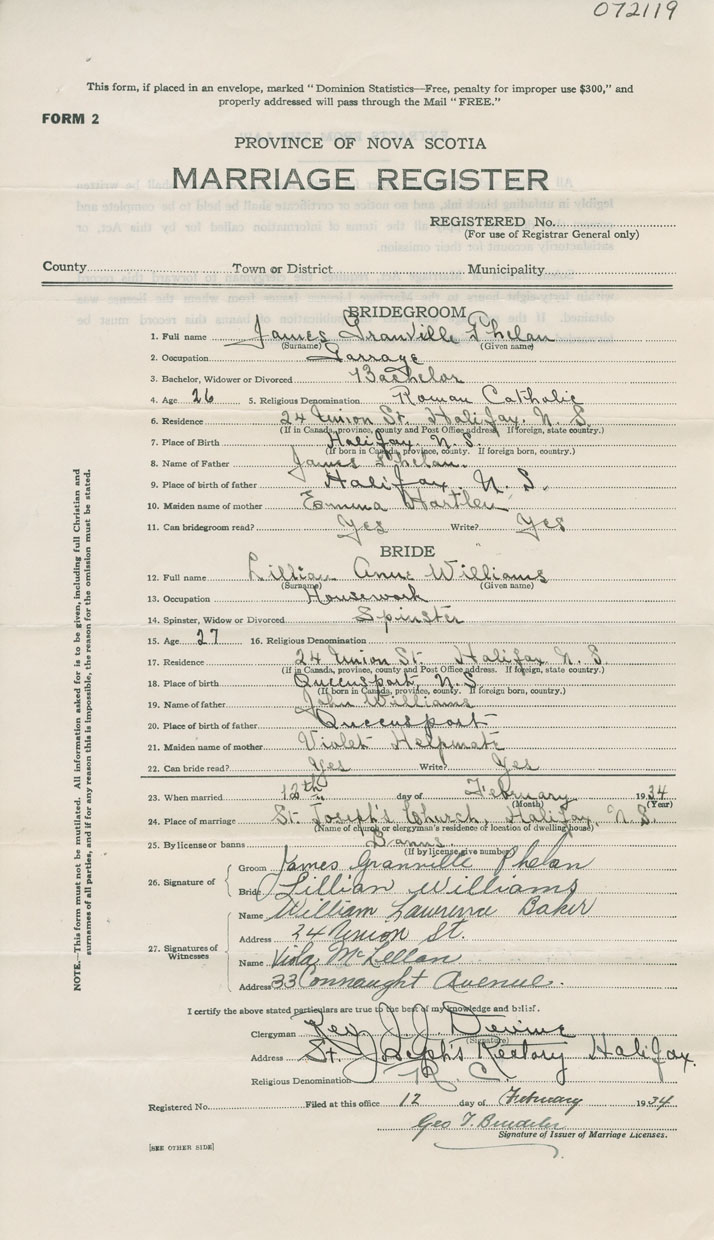 072119
This form, if placed in an envelope, marked "Dominion Statistics—Free, penalty for improper use $300," and
properly addressed will pass through the Mail "FREE."
FORM 2
PROVINCE OF NOVA SCOTIA
MARRIAGE REGISTER
REGISTERED No.
(For use of Registrar General only)
County Town or District Municipality
BRIDEGROOM
1. Full name James Granville Phelan
(Surname) (Given name)
2. Occupation Garrage
3. Bachelor, Widower or Divorced Bachelor
4. Age 26 5. Religious Denomination Roman Catholic
6. Residence 24 Union St. Halifax. N. S.
(If in Canada, province, county and Post Office address. If foreign, state country.)
7. Place of Birth Halifax. N. S.
(If born in Canada, province, county. If foreign born, country.)
8. Name of Father James Phelan.
9. Place of birth of father Halifax. N. S.
10. Maiden name of mother Emma Hartlen
11. Can bridegroom read? Yes Write? Yes
BRIDE
12. Full name Lillian Anne Williams
(Surname) (Given name)
13. Occupation Housework
14. Spinster, Widow or Divorced Spinster
15. Age 27 16. Religious Denomination
17. Residence 24 Union St. Halifax. N. S.
(If in Canada, province, county and Post Office address. If foreign, state country.)
18. Place of birth Queensport, N. S.
(If born in Canada, province, county. If foreign born, country.)
19. Name of father John Williams
20. Place of birth of father Queensport
21. Maiden name of mother Violet Helpmate
22. Can bride read? Yes Write? Yes
23. When married 12th day of February 1934
(Month) (Year)
24. Place of marriage St. Joseph's Church, Halifax, N. S.
(Name of church or clergyman's residence or location of dwelling house)
25. By license or banns Banns.
(If by license give number)
26. Signature of Groom James Granville Phelan
Bride Lillian Williams
27. Signatures of Witnesses
Name William Lawrence Baker
Address 24 Union St.
Name Viola McLellan
Address 33 Connaught Avenue.
I certify the above stated particulars are true to the best of my knowledge and belief.
Clergyman Rev. J. J. Devine
(Signature)
Address St. Joseph's Rectory Halifax.
Religious Denomination R. C.
Registered No. Filed at this office 12 day of February 1934
Geo T.
Signature of Issuer of Marriage Licenses.
[SEE OTHER SIDE]
NOTE.—This form must not be mutilated. All information asked for is to be given, including full Christian and
surnames of all parties, and if for any reason this is impossible, the reason for the omission must be stated.